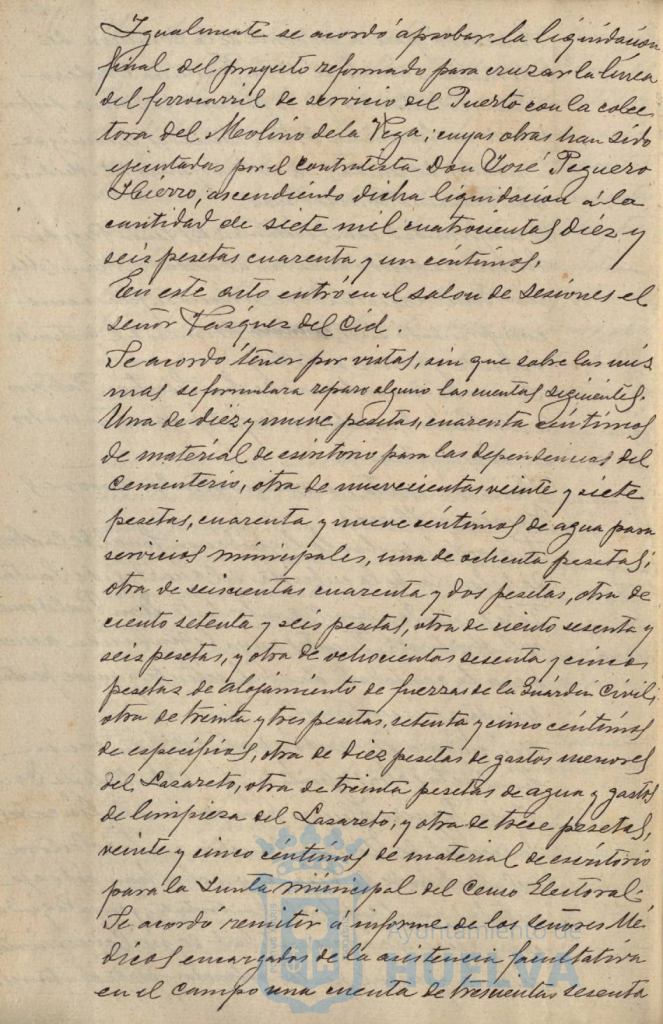 Igualmente se acordó aprobar la liquidacion
final del proyecto reformado para cruzar la línea
del ferrocarril de servicio del Puerto con la colec-
tora del Molino de la Vega; cuyas obras han sido
ejecutadas por el contratista Don José Peguero
Hierro, ascendiendo dicha liquidacion á la
cantidad de siete mil cuatrocientas diez y
seis pesetas cuarenta y un céntimos.
En este acto entró en el salon de sesiones el
señor Vazquez del Cid.
Se acordó tener por vistas, sin que sobre las mis-
mas se formulara reparo alguno las cuentas siguientes.
Una de diez y nueve pesetas, cuarenta céntimos
de material de escritorio para las dependencias del
Cementerio, otra de nuevecientas veinte y siete
pesetas, cuarenta y nueve céntimos de agua para
servicios municipales, una de ochenta pesetas;
otra de seiscientas cuarenta y dos pesetas, otra de
ciento setenta y seis pesetas, otra de ciento sesenta y
seis pesetas, y otra de ochocientas sesenta y cinco
pesetas de alojamiento de fuerzas de la Guardia Civil;
otra de treinta y tres pesetas, setenta y cinco céntimos
de específicos, otra de diez pesetas de gastos menores
del Lazareto, otra de treinta pesetas de agua y gastos
de limpieza del Lazareto, y otra de trece pesetas,
veinte y cinco céntimos de material de escritorio
para la Junta municipal del Censo Electoral.
Se acordó remitir á informe de los señores Mé-
dicos encargados de la asistencia facultativa
en el campo una cuenta de trescientas sesenta
Ayuntamiento de
HUELVA